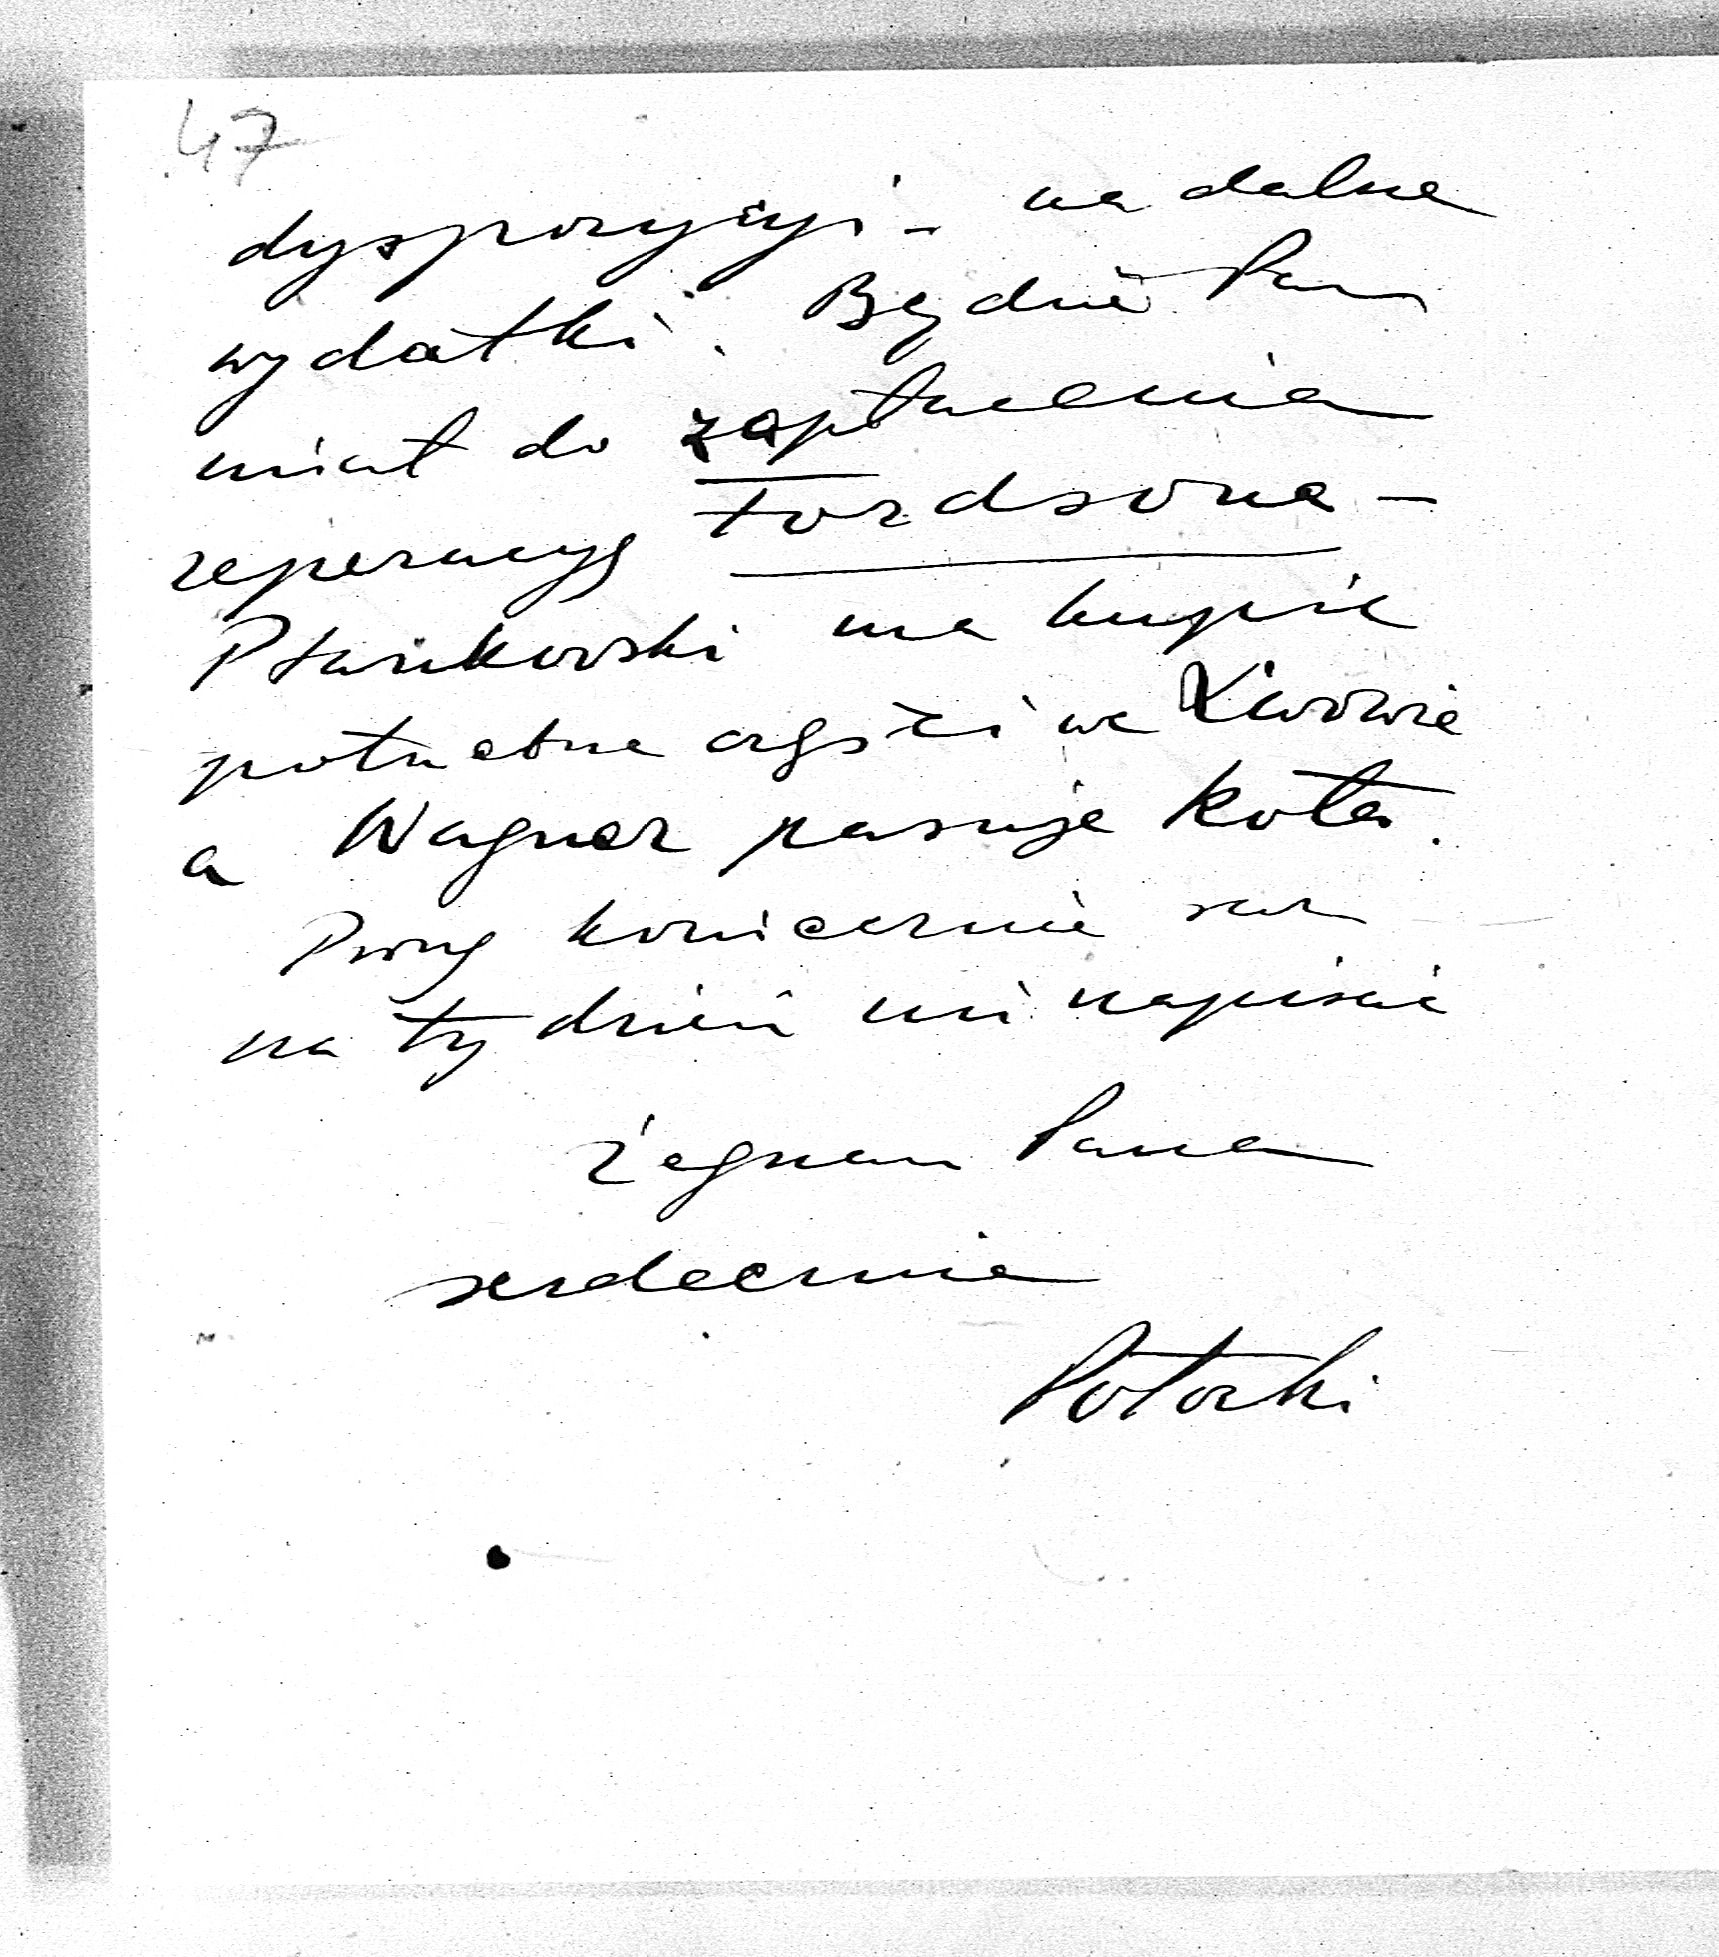 47
dyspozycyi - na dalsze
wydatki. Będzie Pan
miał do zapłacenia
reperacyę Fordsona -
Ptasikowski ma kupić
potrzebne części we Lwowie
a Wagner pasuje koła.
Proszę koniecznie raz
na tydzień mi napisać
Żegnam Pana
serdecznie
Potocki